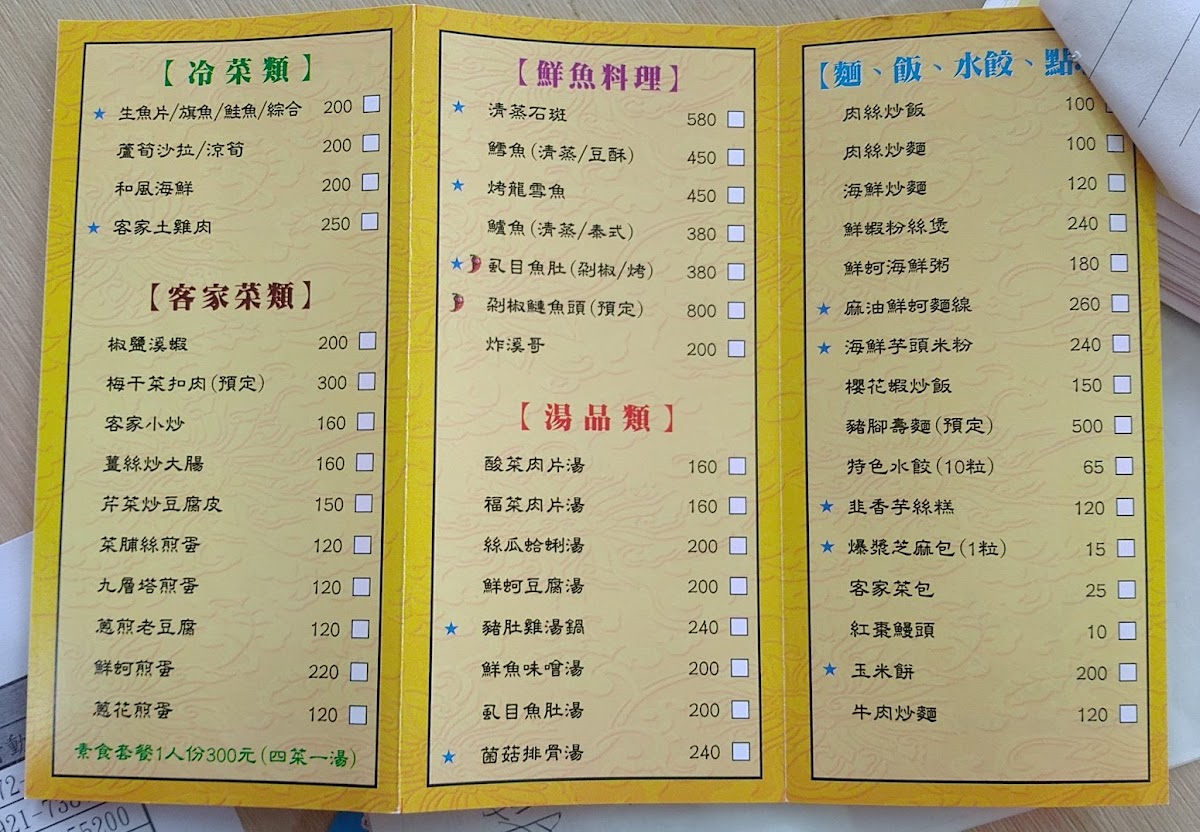 【冷菜類】
★ 生魚片/旗魚/鮭魚/綜合 200
蘆筍沙拉/涼筍 200
和風海鮮 200
★ 客家土雞肉 250
【客家菜類】
椒鹽溪蝦 200
梅干菜扣肉(預定) 300
客家小炒 160
薑絲炒大腸 160
芹菜炒豆腐皮 150
菜脯絲煎蛋 120
九層塔煎蛋 120
蔥煎老豆腐 120
鮮蚵煎蛋 220
蔥花煎蛋 120
素食套餐1人份300元(四菜一湯)
【鮮魚料理】
★ 清蒸石斑 580
鱈魚(清蒸/豆酥) 450
★ 烤龍雪魚 450
鱸魚(清蒸/泰式) 380
★ 虱目魚肚(剁椒/烤) 380
剁椒鰱魚頭(預定) 800
炸溪哥 200
【湯品類】
酸菜肉片湯 160
福菜肉片湯 160
絲瓜蛤蜊湯 200
鮮蚵豆腐湯 200
★ 豬肚雞湯鍋 240
鮮魚味噌湯 200
虱目魚肚湯 200
★ 菌菇排骨湯 240
【麵、飯、水餃、點
肉絲炒飯 100
肉絲炒麵 100
海鮮炒麵 120
鮮蝦粉絲煲 240
鮮蚵海鮮粥 180
★ 麻油鮮蚵麵線 260
★ 海鮮芋頭米粉 240
櫻花蝦炒飯 150
豬腳壽麵(預定) 500
特色水餃(10粒) 65
★ 韭香芋絲糕 120
★ 爆漿芝麻包(1粒) 15
客家菜包 25
紅棗饅頭 10
★ 玉米餅 200
牛肉炒麵 120